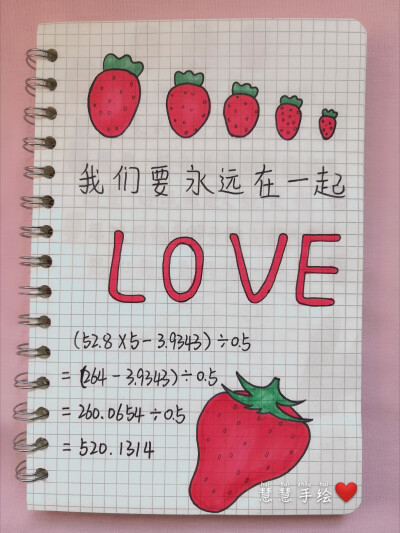 我们要永远在一起
LOVE
(52.8×5-3.9343)÷0.5
=(264-3.9343)÷0.5
=260.0654÷0.5
=520.1314
慧慧手绘